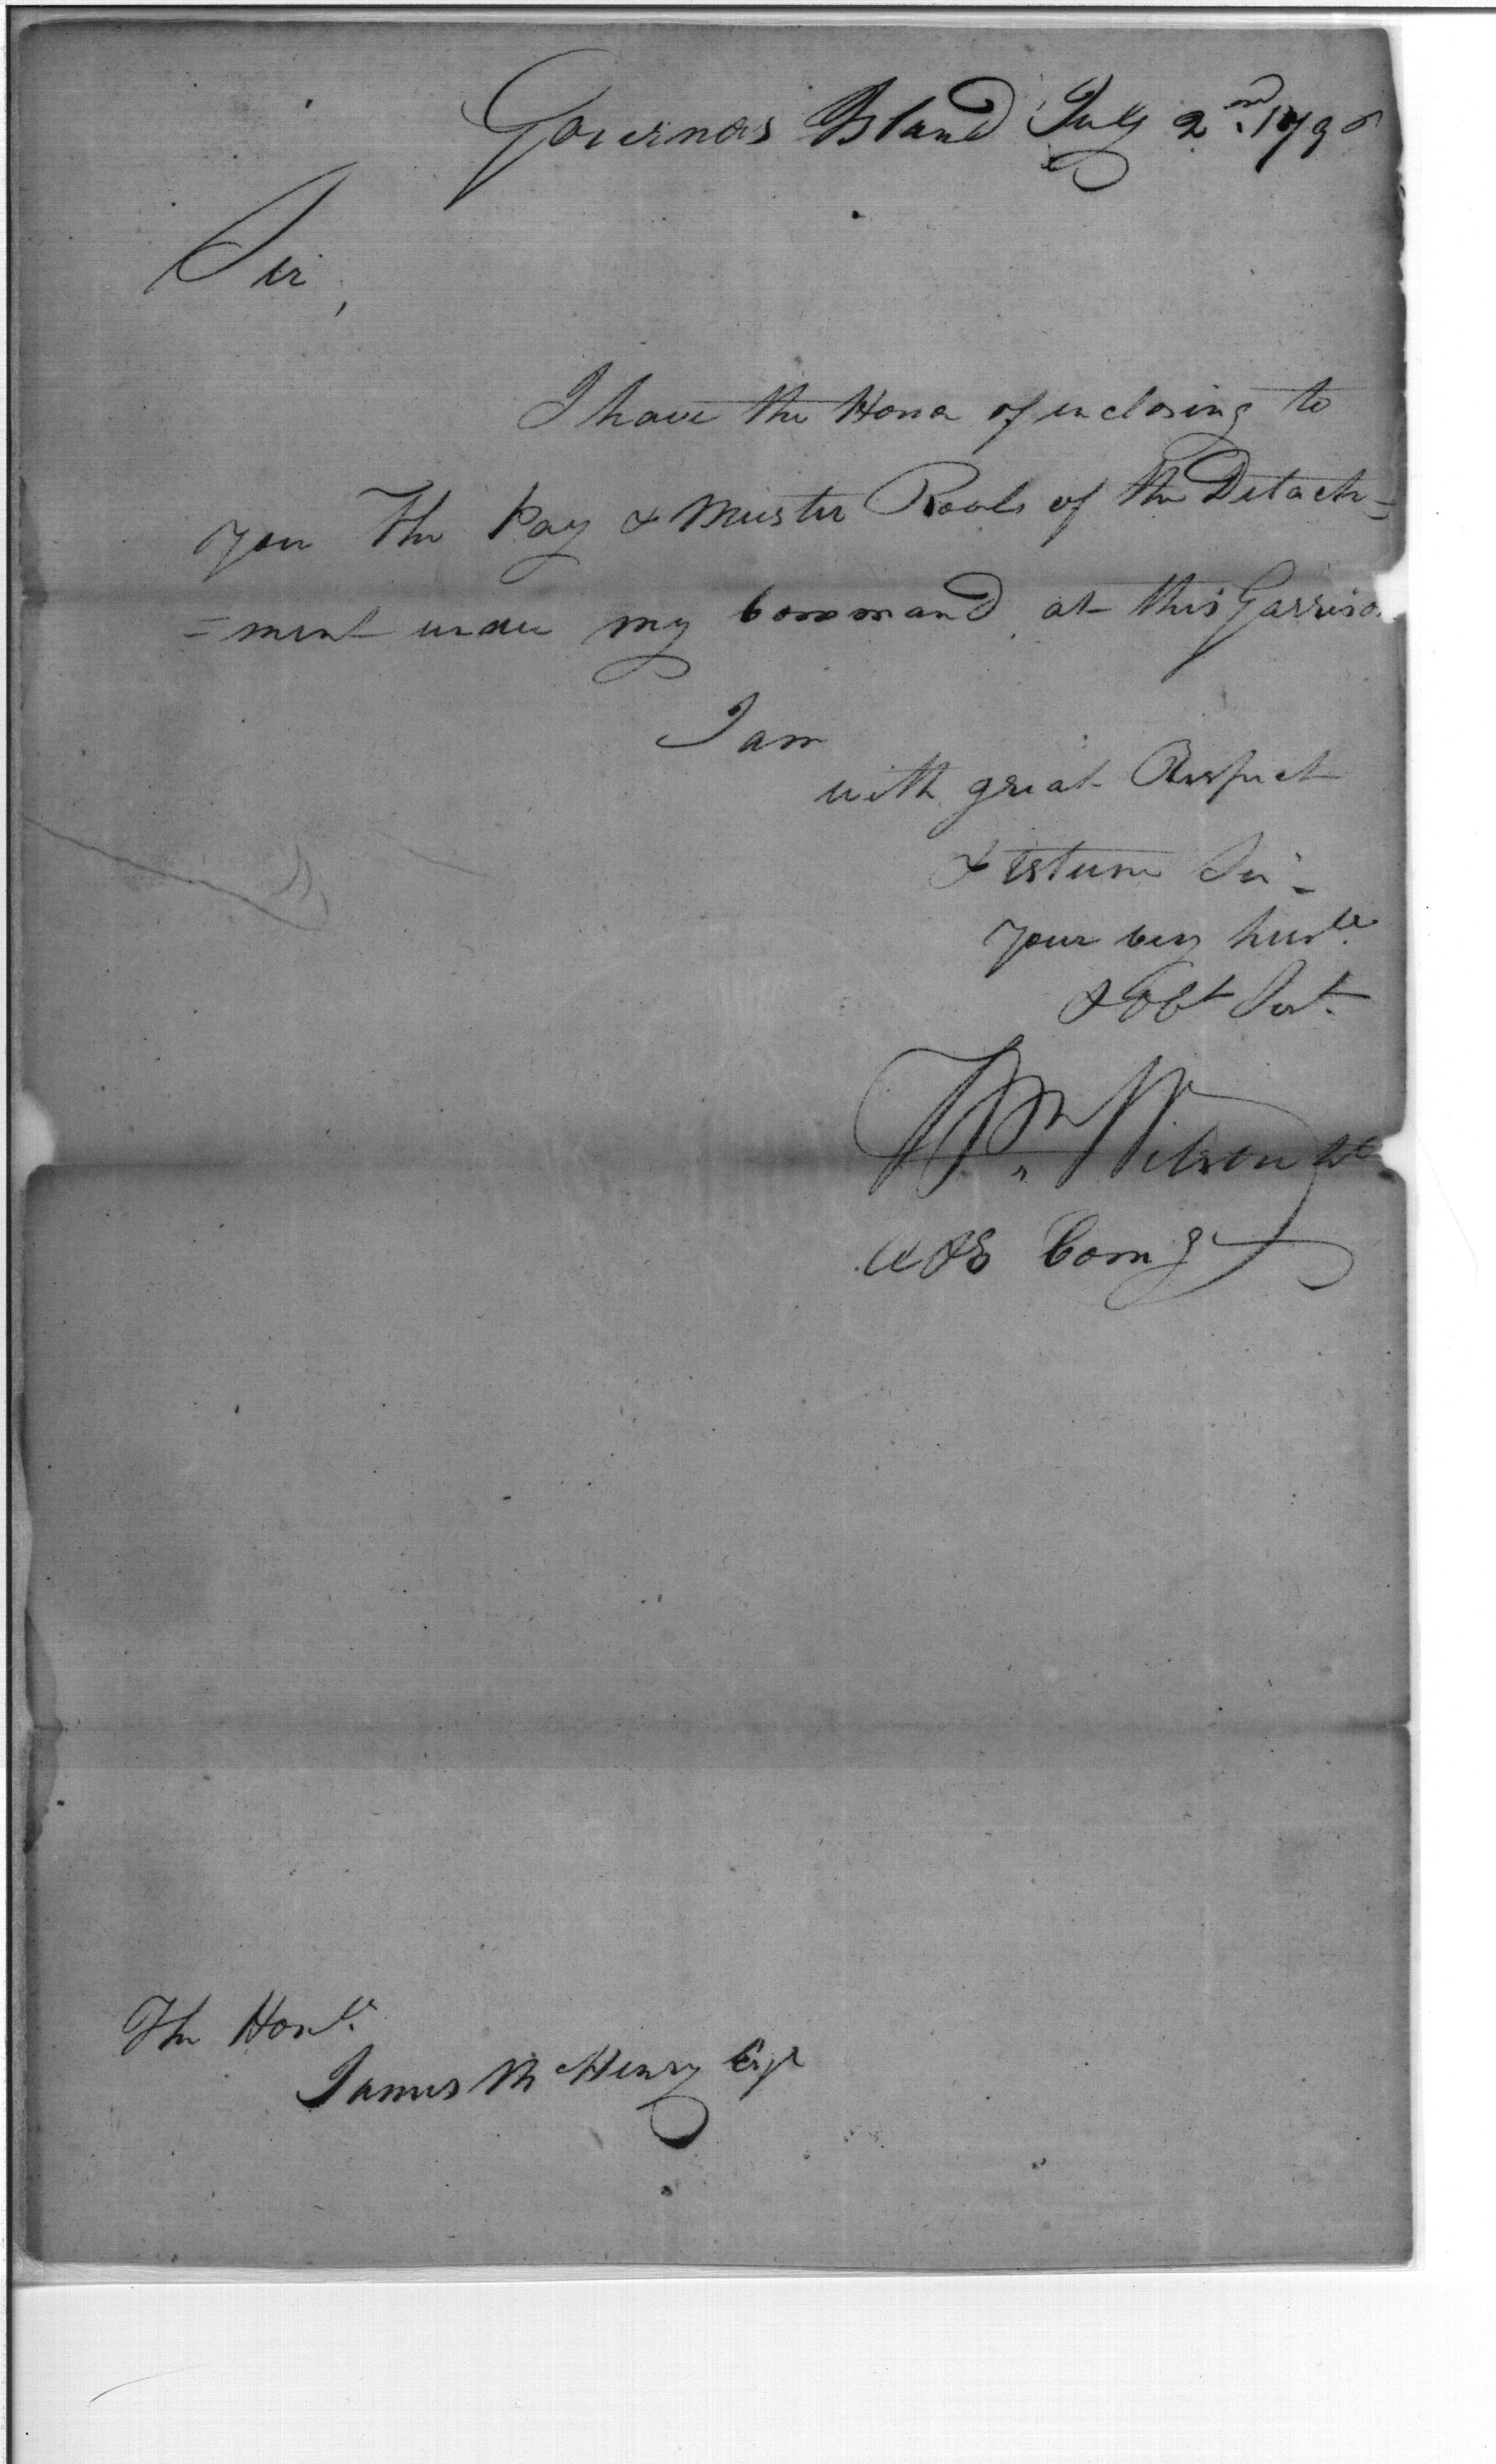 Governors Island July 2nd. 179
Sir,
I have the Honor of enclosing to
you The Pay & Muster Rools of the Detach=
=ment under my Command at this Garriso
I am
with great Respect
& esteem Sir
Your very hum'le
& Obt Sert.
Wm Wilson Lt
A&E Comg
The Honle.
James McHenry Esqr